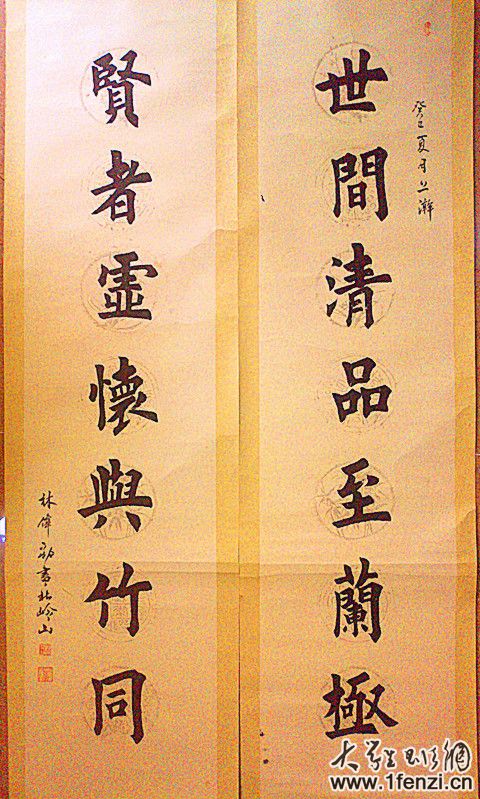 世間清品至蘭極
癸巳夏月上澣
賢者虛懷與竹同
林偉書岭山
www.1fenzi.cn